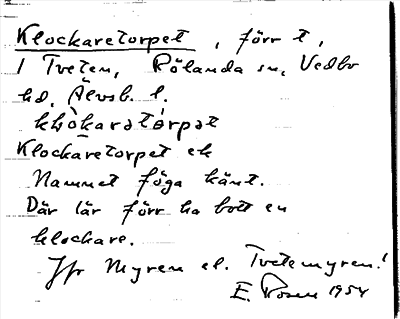 Klockaretorpet, förr t,
1 Tveten, Rölanda sn, Vedbo
hd, Älvsb. l.
klòkaratórpat
Klockaretorpet ek
Namnet föga känt.
Där lär förr ha bott en
klockare.
Jfr Myren el. Tvetemyren!
E. Rosen 1954